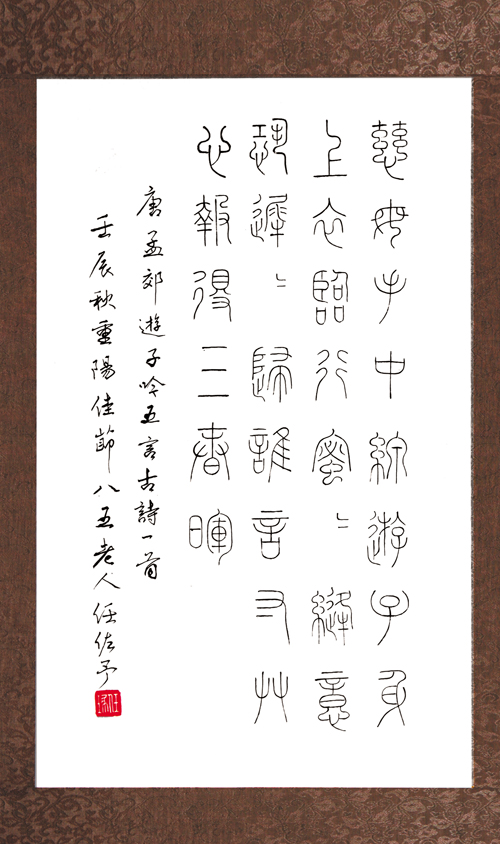 慈母手中綫遊子身
上衣臨行蜜〻縫意
恐遲〻歸誰言寸艸
心報得三春暉
唐孟郊遊子吟五言古詩一首
壬辰秋重陽佳節八五老人任佐予